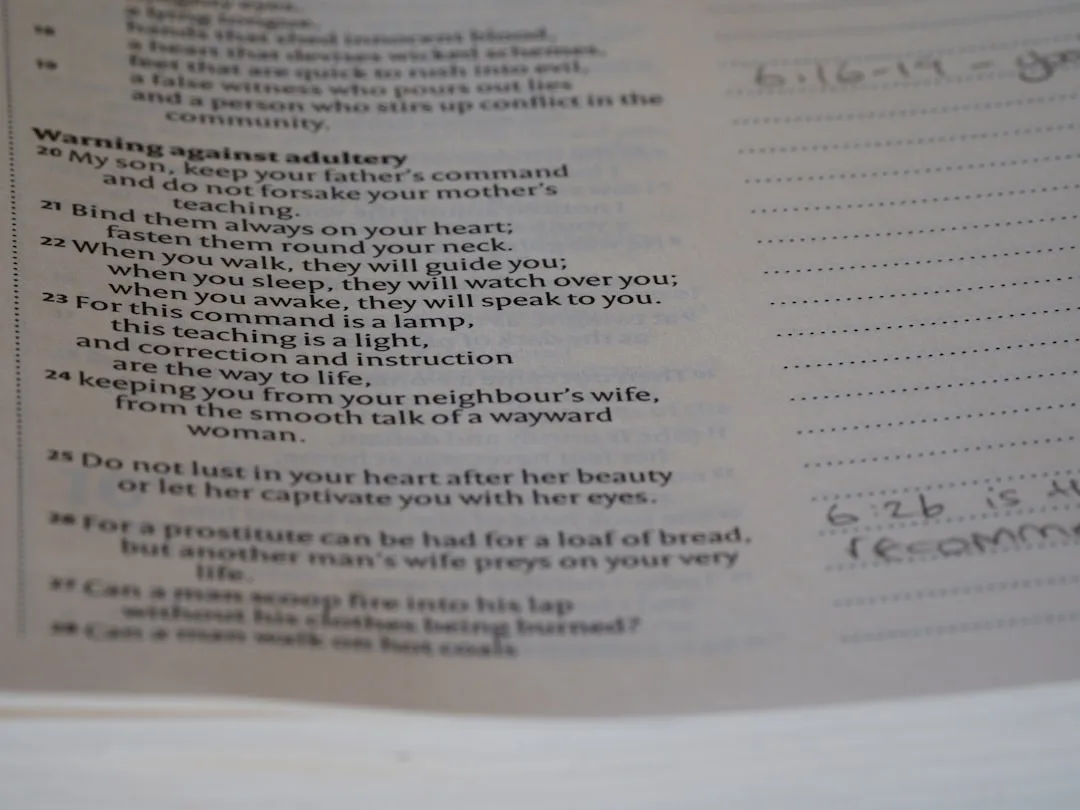 a lying tongue,
18
hands that shed innocent blood,
a heart that devises wicked schemes,
19
feet that are quick to rush into evil,
a false witness who pours out lies
and a person who stirs up conflict in the
community.
Warning against adultery
20 My son, keep your father's command
and do not forsake your mother's
teaching.
21 Bind them always on your heart;
fasten them round your neck.
22 When you walk, they will guide you;
when you sleep, they will watch over you;
when you awake, they will speak to you.
23 For this command is a lamp,
this teaching is a light,
and correction and instruction
are the way to life,
24 keeping you from your neighbour's wife,
from the smooth talk of a wayward
woman.
25 Do not lust in your heart after her beauty
or let her captivate you with her eyes.
26 For a prostitute can be had for a loaf of bread,
but another man's wife preys on your very
life.
27 Can a man scoop fire into his lap
without his clothes being burned?
28 Can a man walk on hot coals
6:16-19 -
6:26 is
recomme